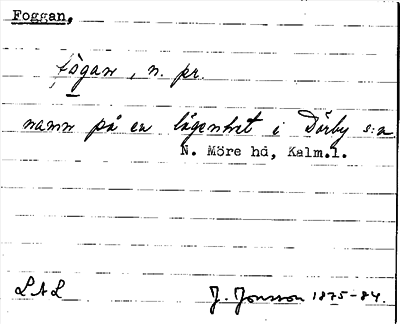 Foggan,
fògan, n. pr.
namn på en lägenhet i Dörby s:n
N. Möre hd, Kalm.l.
LAL J. Jonsson 1875-84.